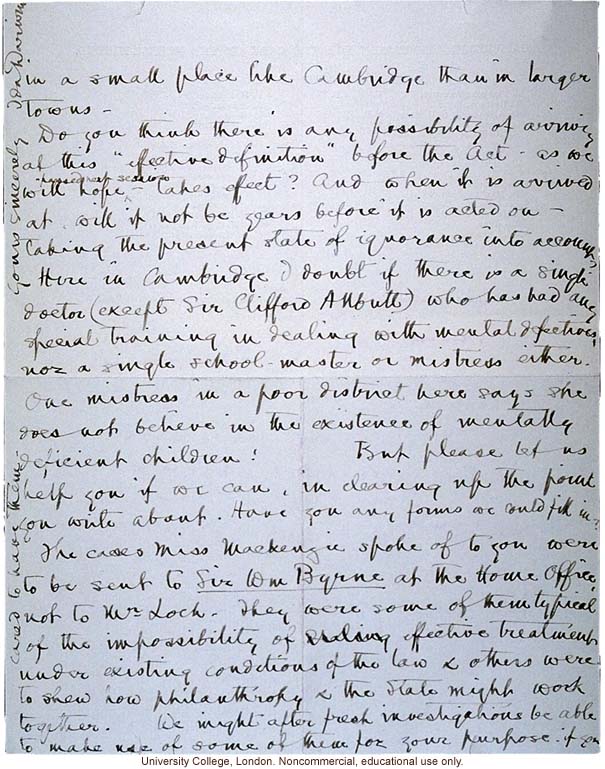 in a small place like Cambridge than in larger
towns -
Do you think there is any possibility of arriving
at this "effective definition" before the Act - as we
next session
will hope - takes effect? And when it is arrived
at will it not be years before it is acted on -
taking the present state of ignorance into account?
Here in Cambridge I doubt if there is a single
doctor (except Sir Clifford Allbutt) who has had any
special training in dealing with mental defectives,
nor a single school-master or mistress either.
One mistress in a poor district here says she
does not believe in the existence of mentally
deficient children! But please let us
help you if we can, in clearing up the point
you write about. Have you any forms we could fill in?
The cases Miss Mackenzie spoke of to you were
to be sent to Sir Wm Byrne at the Home Office,
not to Mr Loch. They were some of them typical
of the impossibility of effective treatment
under existing conditions of the law & others were
to shew how philanthropy & the State might work
together. We might after fresh investigations be able
to make use of some of them for your purpose if you
cared to have them.
Yours sincerely Ida Darwin
University College, London. Noncommercial, educational use only.